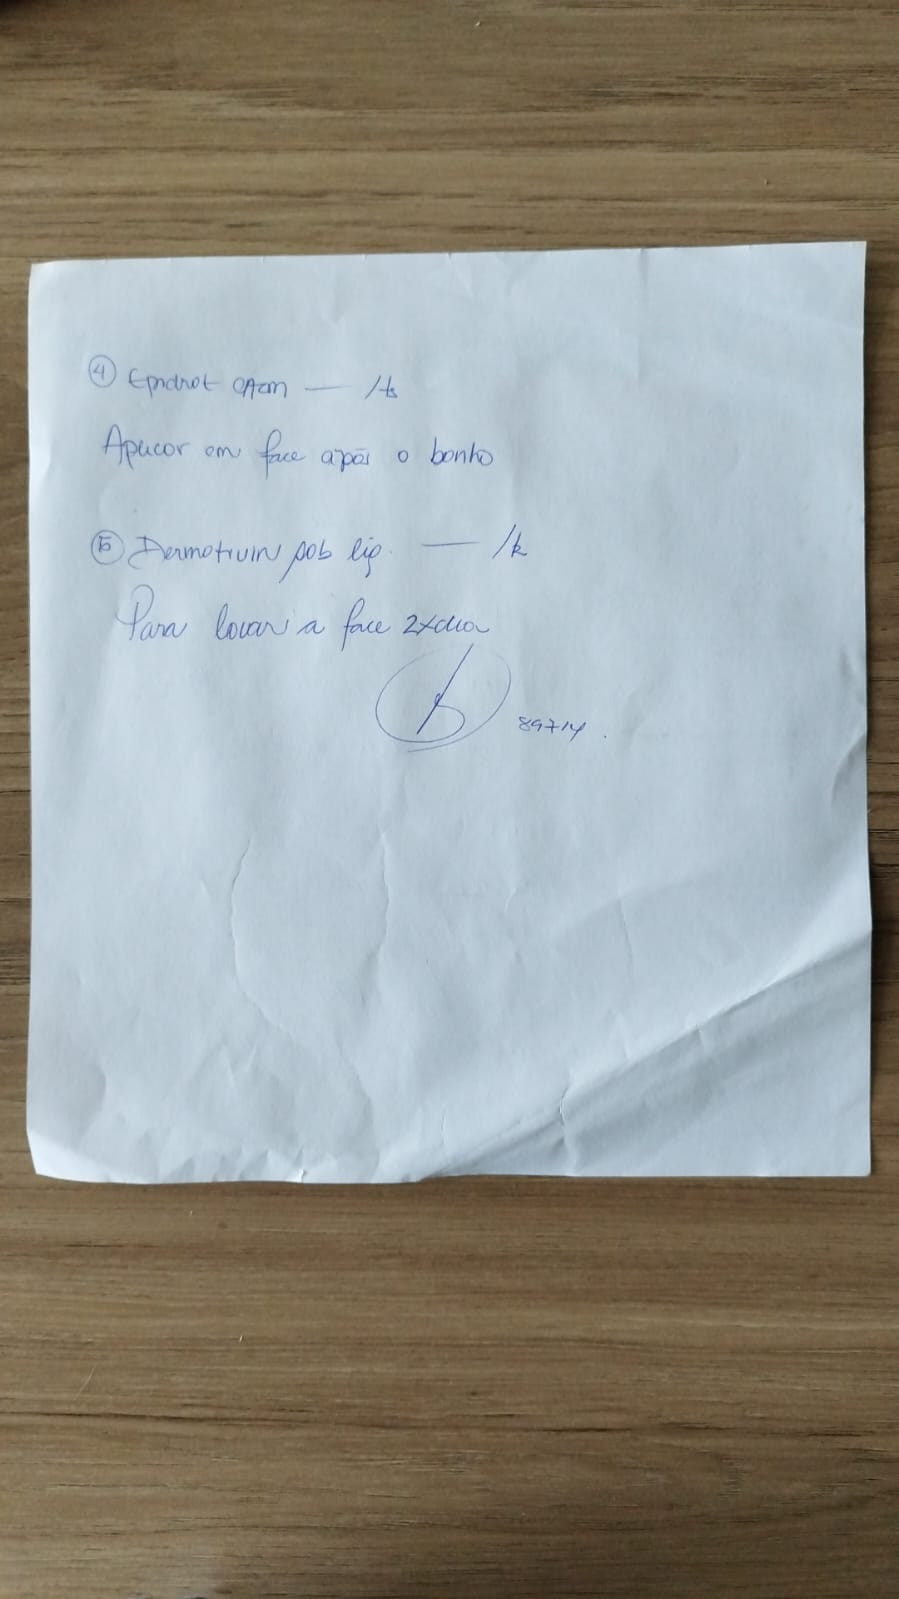 ④ Epidrat
Aplicar em face após o banho
⑤ Dermotivin sab liq. —
Para lavar a face 2xdia
89714.